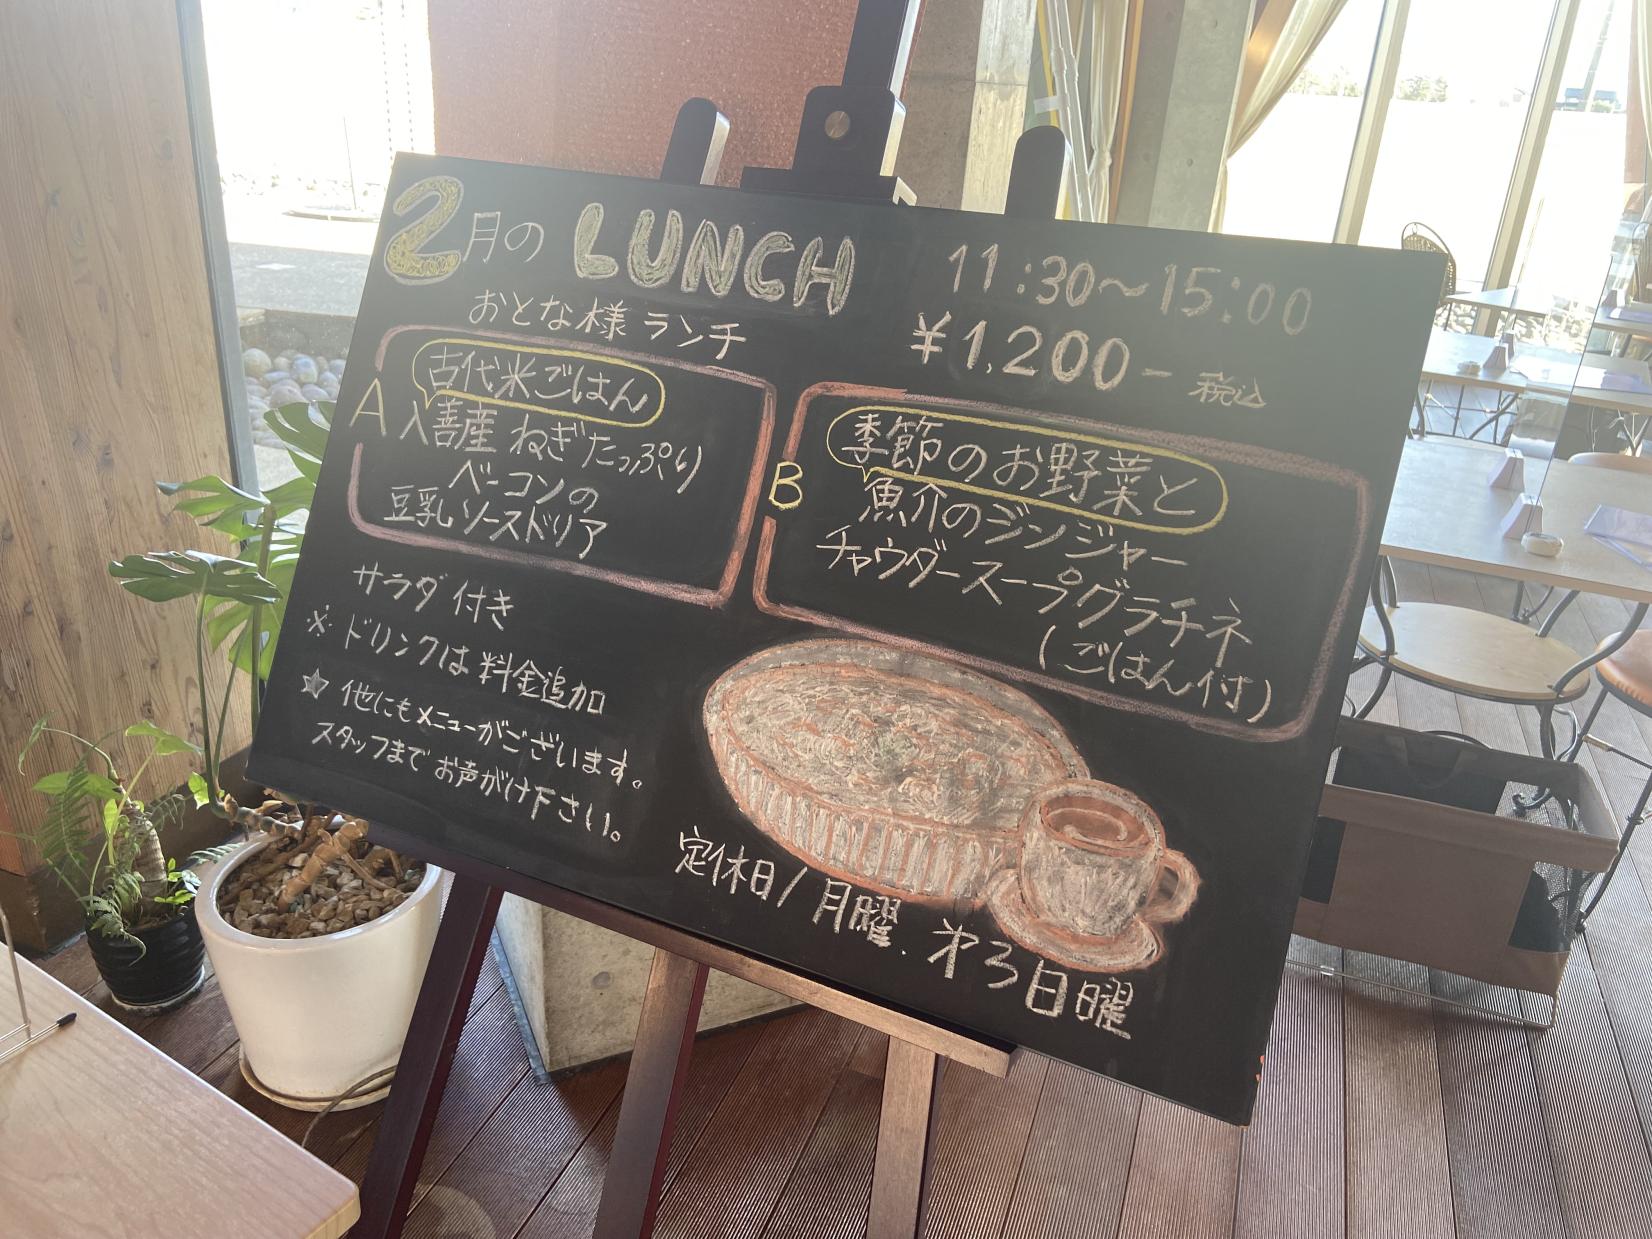 2月の LUNCH
11:30～15:00
おとな様 ランチ
¥1,200－ 税込
A
古代米ごはん
入善産 ねぎたっぷり
ベーコンの
豆乳ソースドリア
B
季節のお野菜と
魚介のジンジャー
チャウダースープグラチネ
(ごはん付)
サラダ付き
※ ドリンクは料金追加
☆ 他にもメニューがございます。
スタッフまでお声がけ下さい。
定休日/月曜. 第3日曜